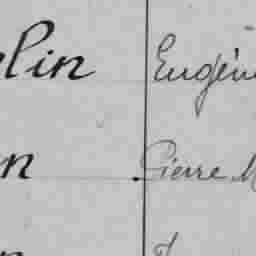 lin Eugén
n Pierre M